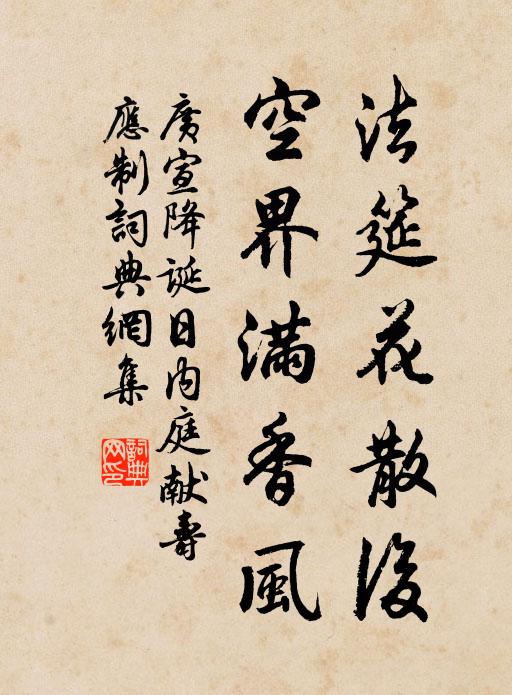 法筵花散後
空界滿香風
广宣降誕日內庭献壽
應制詞典網集
詞典網印